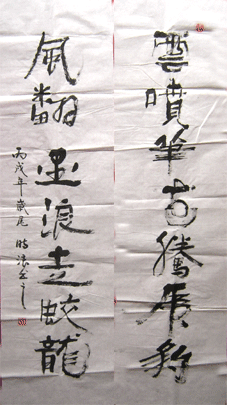 雲噴筆花騰虎豹
風翻墨浪走蛟龍
丙戌年歲尾